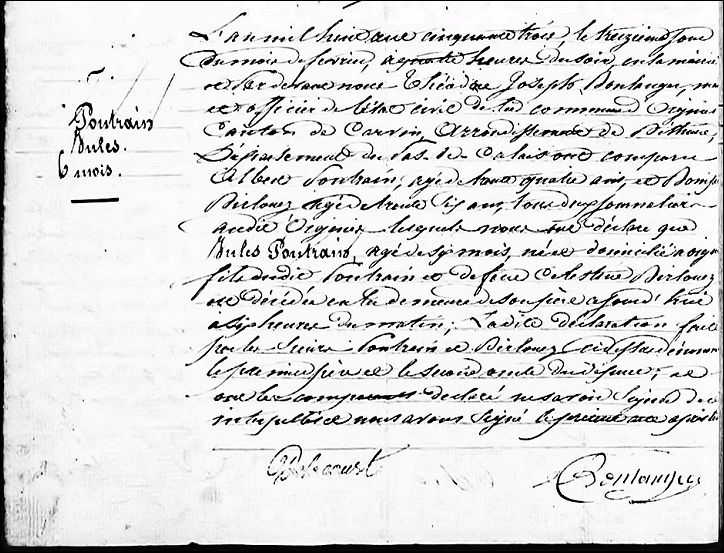 5
Poutrain
Jules.
6 mois.
L'an mil huit cent cinquante trois, le treizième jour
du mois de février, à quatre heures du soir, en la mairie
et Pardevant nous Théodore Joseph Boulanger, ma
et officier de l'état civil de la d commune d'Oignies
Canton de Carvin, Arrondissement de Béthune,
Département du Pas-de-Calais ont comparu
Albert Poutrain, agé de trente quatre ans, et
agé de trente six ans, tous deux
audit Oignies lesquels nous ont déclaré que
Jules Poutrain, agé de six mois, né et domicilié à Oign
fils dudit Poutrain et de feue Célestine
est décédé en la demeure de son père aujourd'hui
à six heures du matin; Ladite déclaration fait
par les Sieurs Poutrain et
le père et le second oncle du défunt; et
ont les comparants déclaré ne savoir signer de ce
interpellés et nous avons signé le présent acte après le
Delcourt
Boulanger